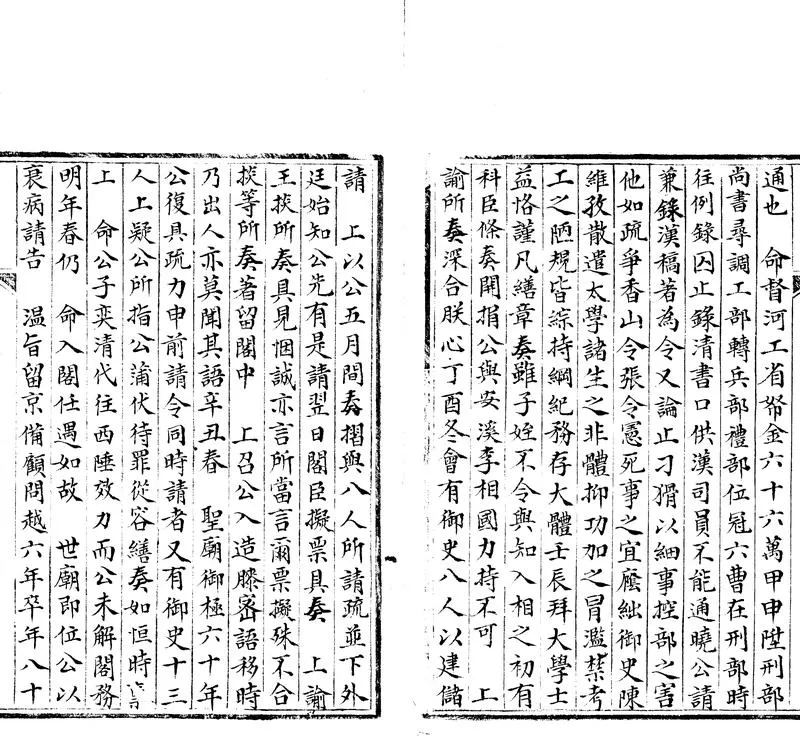 通也　命督河工省帑金六十六萬甲申陞刑部
尚書尋調工部轉兵部禮部位冠六曹在刑部時
往例錄囚止錄清書口供漢司員不能通曉公請
兼錄漢稿著為令又論止刁猾以細事控部之害
他如疏爭香山令張令憲死事之宜廕絀御史陳
維孜散遣太學諸生之非體抑功加之冒濫禁考
工之陋規皆綜持綱紀務存大體壬辰拜大學士
益恪謹凡繕章奏雖子姪不令與知入相之初有
科臣條奏開捐公與安溪李相國力持不可　上
諭所奏深合朕心丁酉冬會有御史八人以建儲
請　上以公五月間奏摺與八人所請疏並下外
廷始知公先有是請翌日閣臣擬票具奏　上諭
王掞所奏具見悃誠亦言所當言爾票擬殊不合
掞等所奏著留閣中　上召公入造膝密語移時
乃出人亦莫聞其語辛丑春　聖廟御極六十年
公復具疏力申前請令同時請者又有御史十三
人上疑公所指公蒲伏待罪從容繕奏如恒時
上　命公子奕清代往西陲效力而公未解閣務
明年春仍　命入閣任遇如故　世廟即位公以
衰病請告　溫旨留京備顧問越六年卒年八十